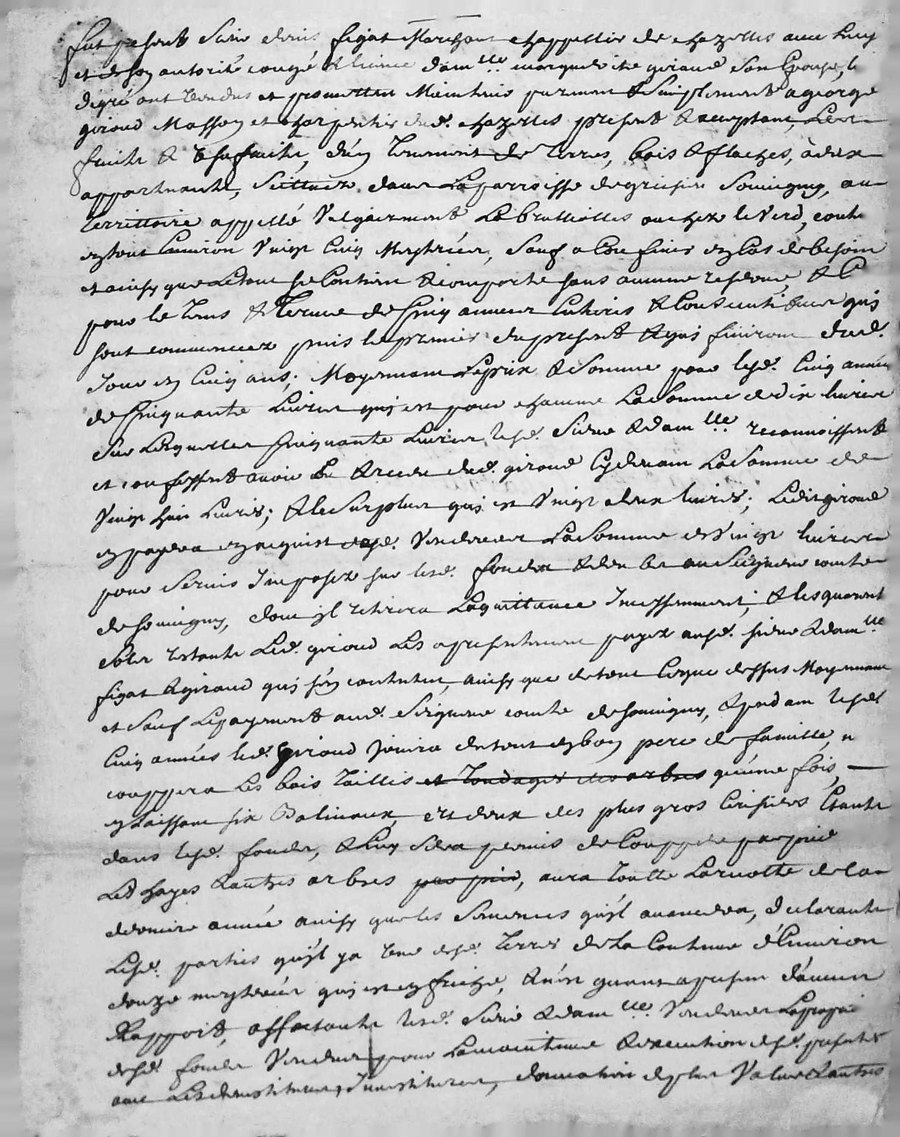 fut present Sieur denis figat Marchant chappellier de chazelles avec luy
et de son autorité congé & licence dam.lle marguerite giraud son Epouse, l
degré ont vendus et promettent Maintenir purement & simplement a george
giroud Masson et charpentier dud. chazelles present & acceptant Les
fruits & Usufruits, d'un tenement de terres, bois & flaches, à eux
appartenants, scittuez dans La parroisse de
territtoire appellé La ou chez le verd, conte
en tout Environ vingt cinq Mestérées, Sauf a En cas de besoin
et ainsy que Le tout se Contient & comporte sans aucune reserve, & Ce
pour le tems & terme de Cinq années Entieres & Consecutives quy
sont commencées puis le premier du present & quy finiront dud.
Jour en Cinq ans; Moyennant Le prix & somme pour lesd. Cinq années
de Cinquante Livres quy est pour chacune La Somme de dix Livres
Sur Lesquelles Cinquante Livres lesd. Sieur & dam.lle reconnoissent
et confessent avoir Eu & receu dud. giroud Cydevant La Somme de
vingt huit Livres; & le Surplus quy est vingt deux Livres; Ledit giroud
en payera en acquist desd. Vendeurs La Somme de vingt Livres
pour Servis Imposez sur lesd. fonds & deubs au Seigneur comte
de Souvigny, dont il retirera La quittance Incessemment; & les quarante
sols restants Led. giroud Les a presentement payez ausd. sieur & dam.lle
figat & giraud quy s'en contentent, ainsy que de tout Ceque dessus Moyennant
et Sauf Le payement aud. Seigneur comte de Souvigny, & pendant lesd.
Cinq années led. giroud Jouira de tout en bon pere de famille,
couppera Les bois taillis et tondages des arbres qu'une fois,
en Laissant six Balivaux, et deux des plus gros Cerisiers Etants
dans lesd. fonds, & luy sera permis de Coupper par pied
Les hayes & autres arbres par pied, aura toutte La recolte de la
derniere année ainsy que les Semences qu'il avancera, declarants
Lesd. parties qu'il y a une desd. terres de La Contenue d'Environ
douze mestérées quy est en friche, & n'est quant a present d'aucun
Rapport, affectants lesd. Sieur & dam.lle Vendeurs La proprieté
desd. fonds Vendus pour La maintenue & execution desd. presentes
avec Les devestitures, Investitures, donnation de plus Value & autres